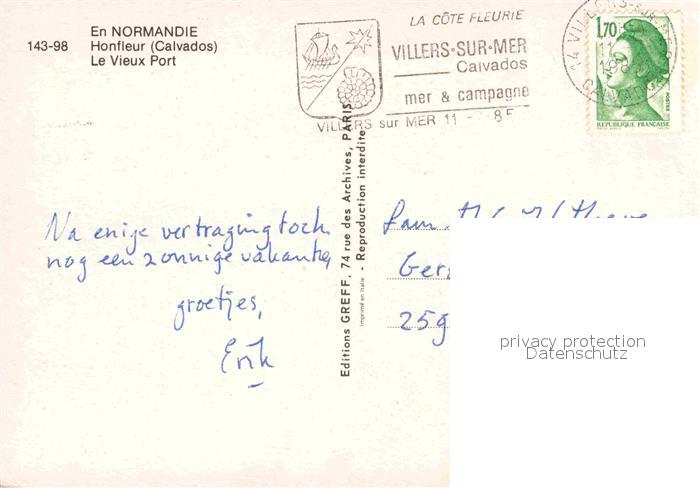 En NORMANDIE
143-98 Honfleur (Calvados)
Le Vieux Port
LA CÔTE FLEURIE
VILLERS-SUR-MER
Calvados
mer & campagne
VILLERS sur MER 11 - 85
1,70
POSTES
REPUBLIQUE FRANÇAISE
14 VILLERS-SUR-MER
CALVADOS
Editions GREFF, 74 rue des Archives, PARIS
Imprimé en Italie - Reproduction interdite
Na enige vertraging toch
nog een zonnige vakantie,
groetjes,
Erik
Fam.
Ger
259
privacy protection
Datenschutz